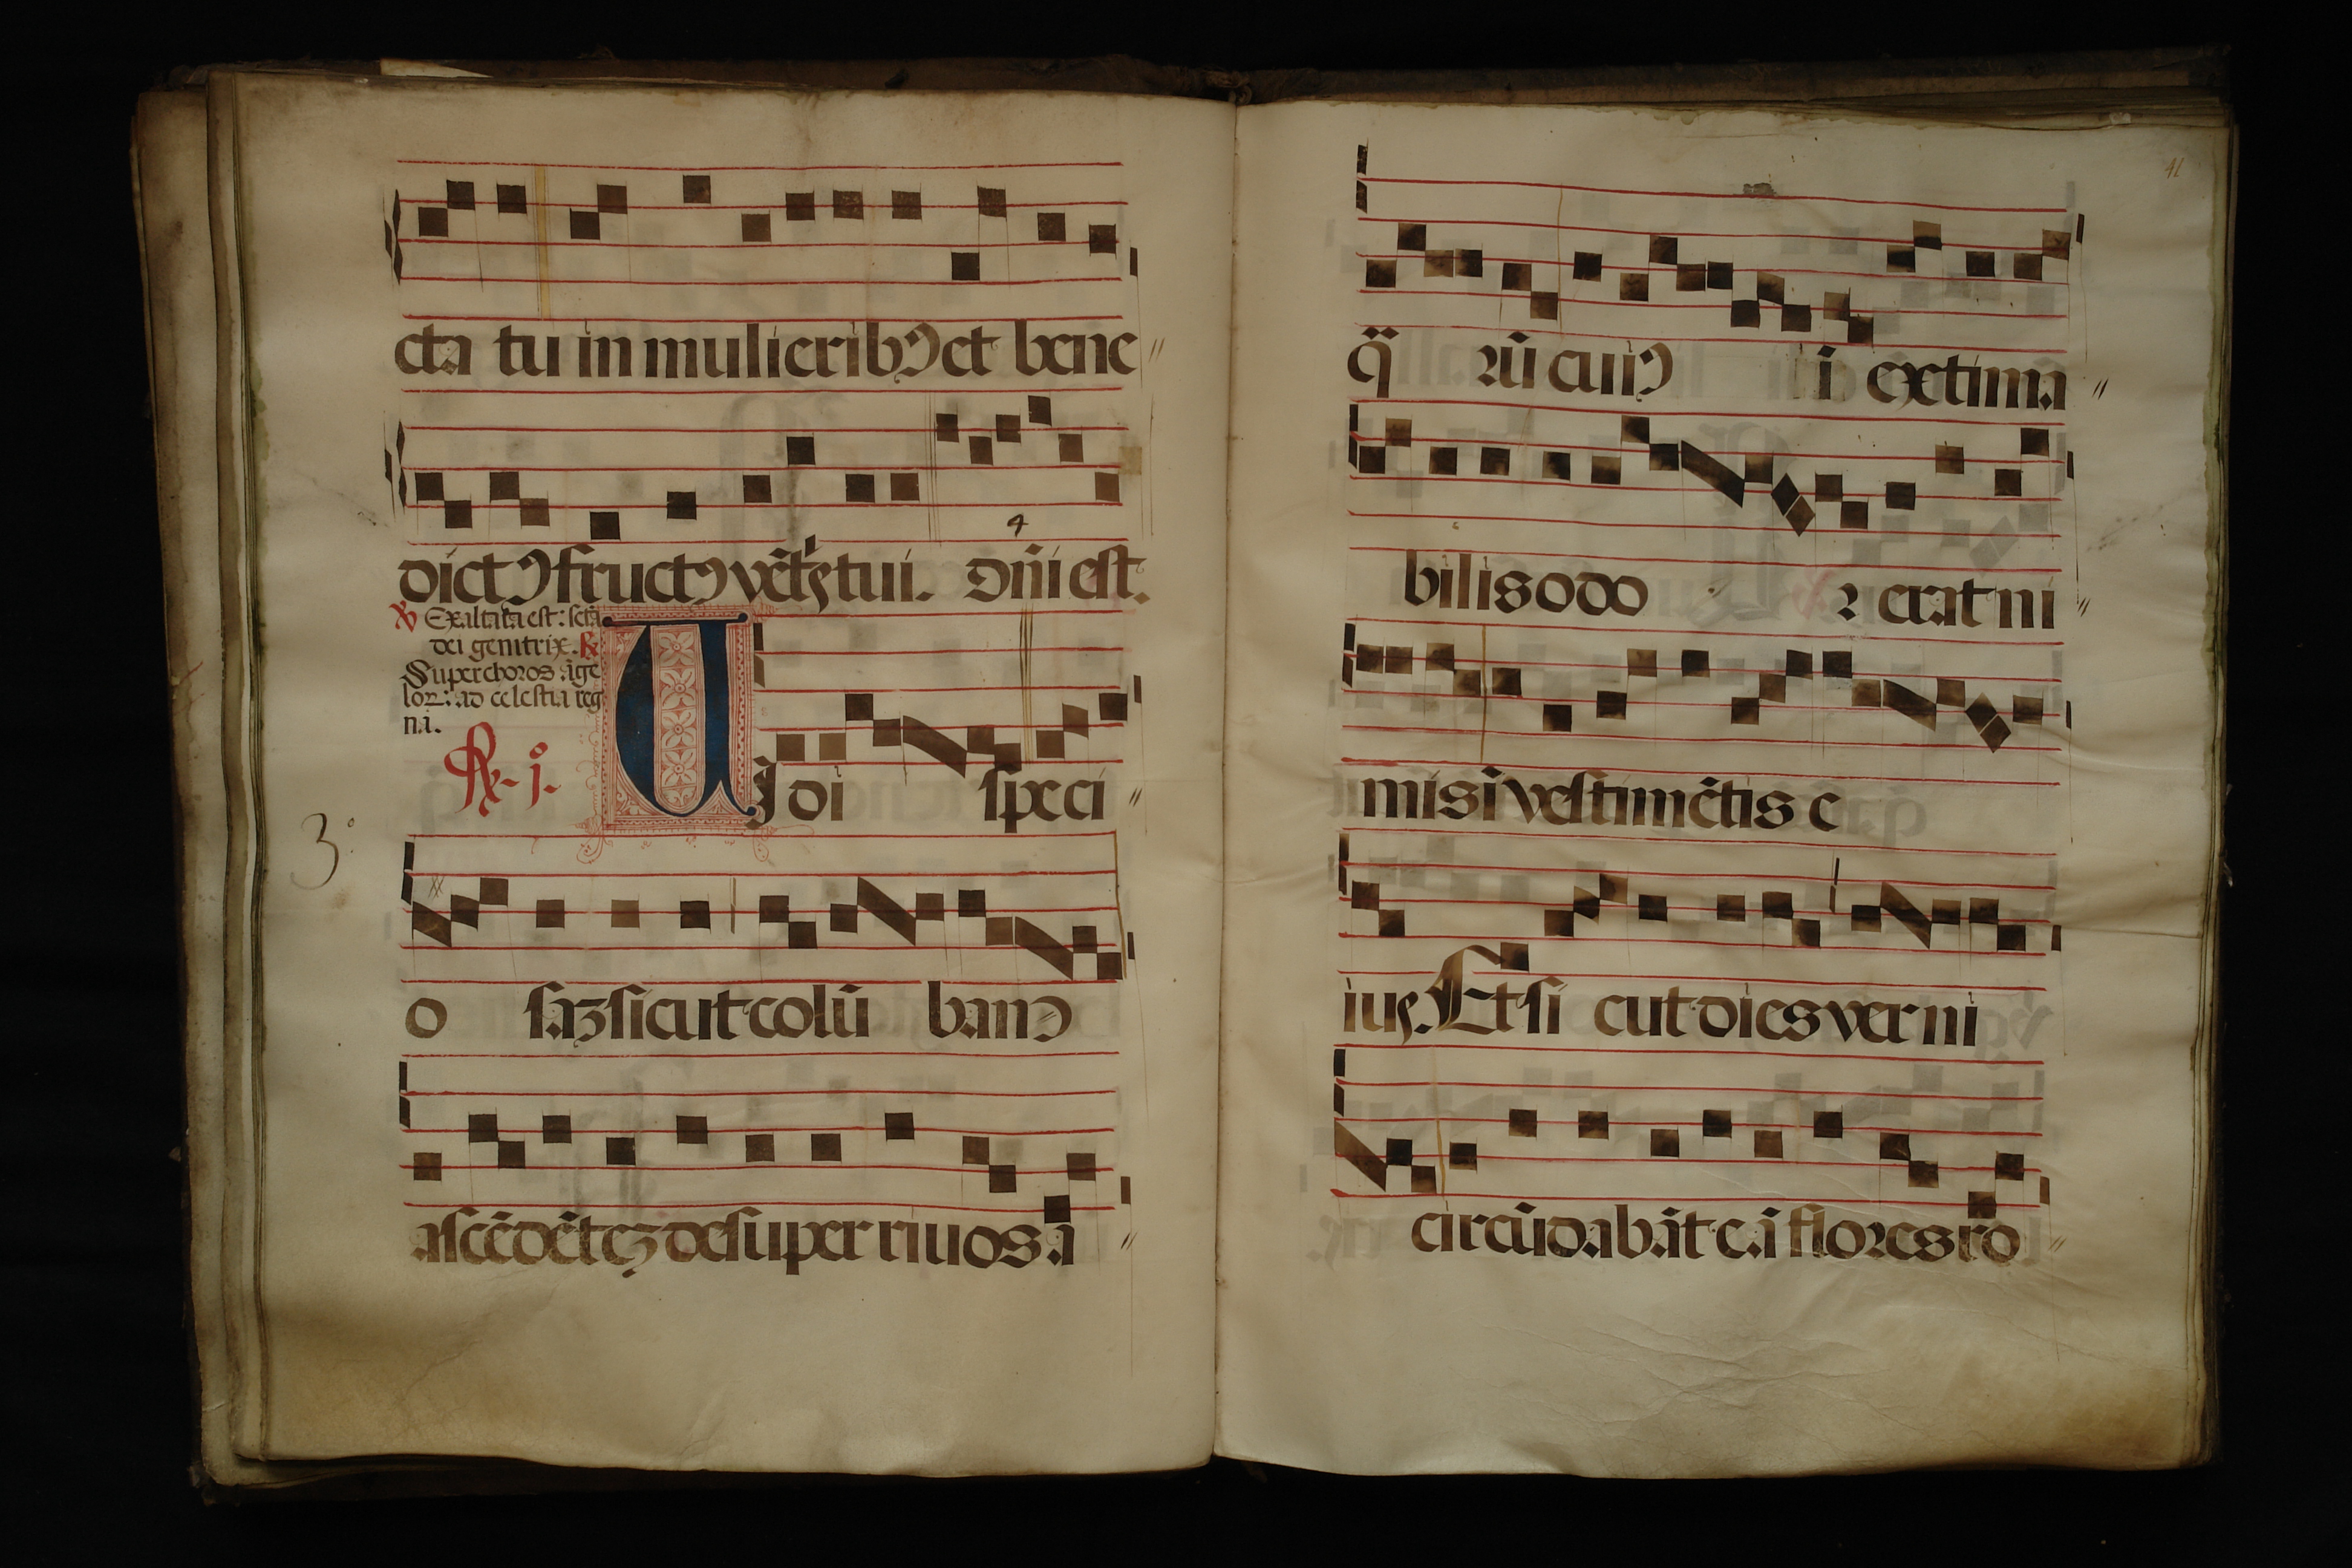 cta tu in mulieribꝰ et bene
dictꝰ fructꝰ vẽtris tui. Dñi est.
℣ Exaltata est: sctã
dei genitrix. ℟
Super choros ãge
loꝝ: ad celestia reg
na.
℟. j.º
UJdi speci
3º
o saʒ sicut colũ banꝫ
ascẽdẽteʒ desuper riuos a
41
q̃ ꝛũ cuiꝰ ĩ extima
bilis odo ꝛ erat ni
mis ĩ vestimẽtis e
ius. Et si cut dies verni
circũdabãt eã flores ro